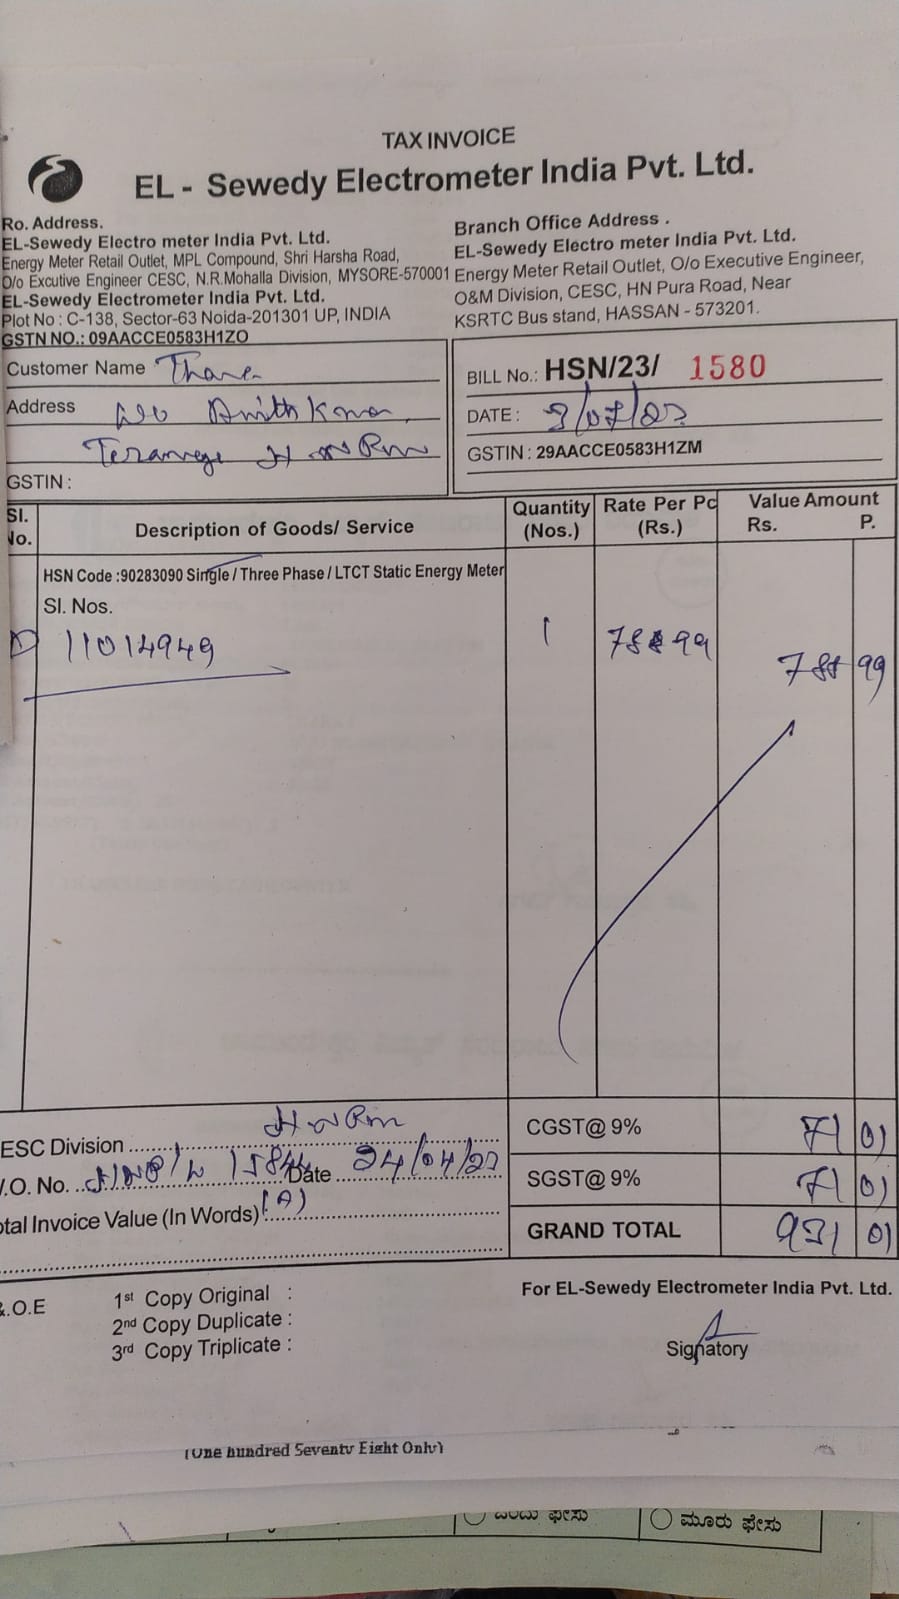 TAX INVOICE
EL - Sewedy Electrometer India Pvt. Ltd.
Ro. Address.
EL-Sewedy Electro meter India Pvt. Ltd.
Energy Meter Retail Outlet, MPL Compound, Shri Harsha Road,
O/o Excutive Engineer CESC, N.R.Mohalla Division, MYSORE-570001
EL-Sewedy Electrometer India Pvt. Ltd.
Plot No : C-138, Sector-63 Noida-201301 UP, INDIA
GSTN NO.: 09AACCE0583H1ZO
Branch Office Address .
EL-Sewedy Electro meter India Pvt. Ltd.
Energy Meter Retail Outlet, O/o Executive Engineer,
O&M Division, CESC, HN Pura Road, Near
KSRTC Bus stand, HASSAN - 573201.
Customer Name
Address
GSTIN :
BILL No.: HSN/23/ 1580
DATE : /07/23
GSTIN : 29AACCE0583H1ZM
Sl. No. Description of Goods/ Service Quantity (Nos.) Rate Per Pc (Rs.) Value Amount Rs. P.
HSN Code :90283090 Single / Three Phase / LTCT Static Energy Meter
Sl. Nos.
1) 11014949 1 788 99 788 99
ESC Division HNRm
.O. No. Date 24/04/23
otal Invoice Value (In Words)
CGST@ 9% 71 01
SGST@ 9% 71 01
GRAND TOTAL 931 01
&.O.E
1st Copy Original :
2nd Copy Duplicate :
3rd Copy Triplicate :
For EL-Sewedy Electrometer India Pvt. Ltd.
Signatory
(One hundred Seventy Eight Only)
ಒಂದು ಫೇಸು ಮೂರು ಫೇಸು